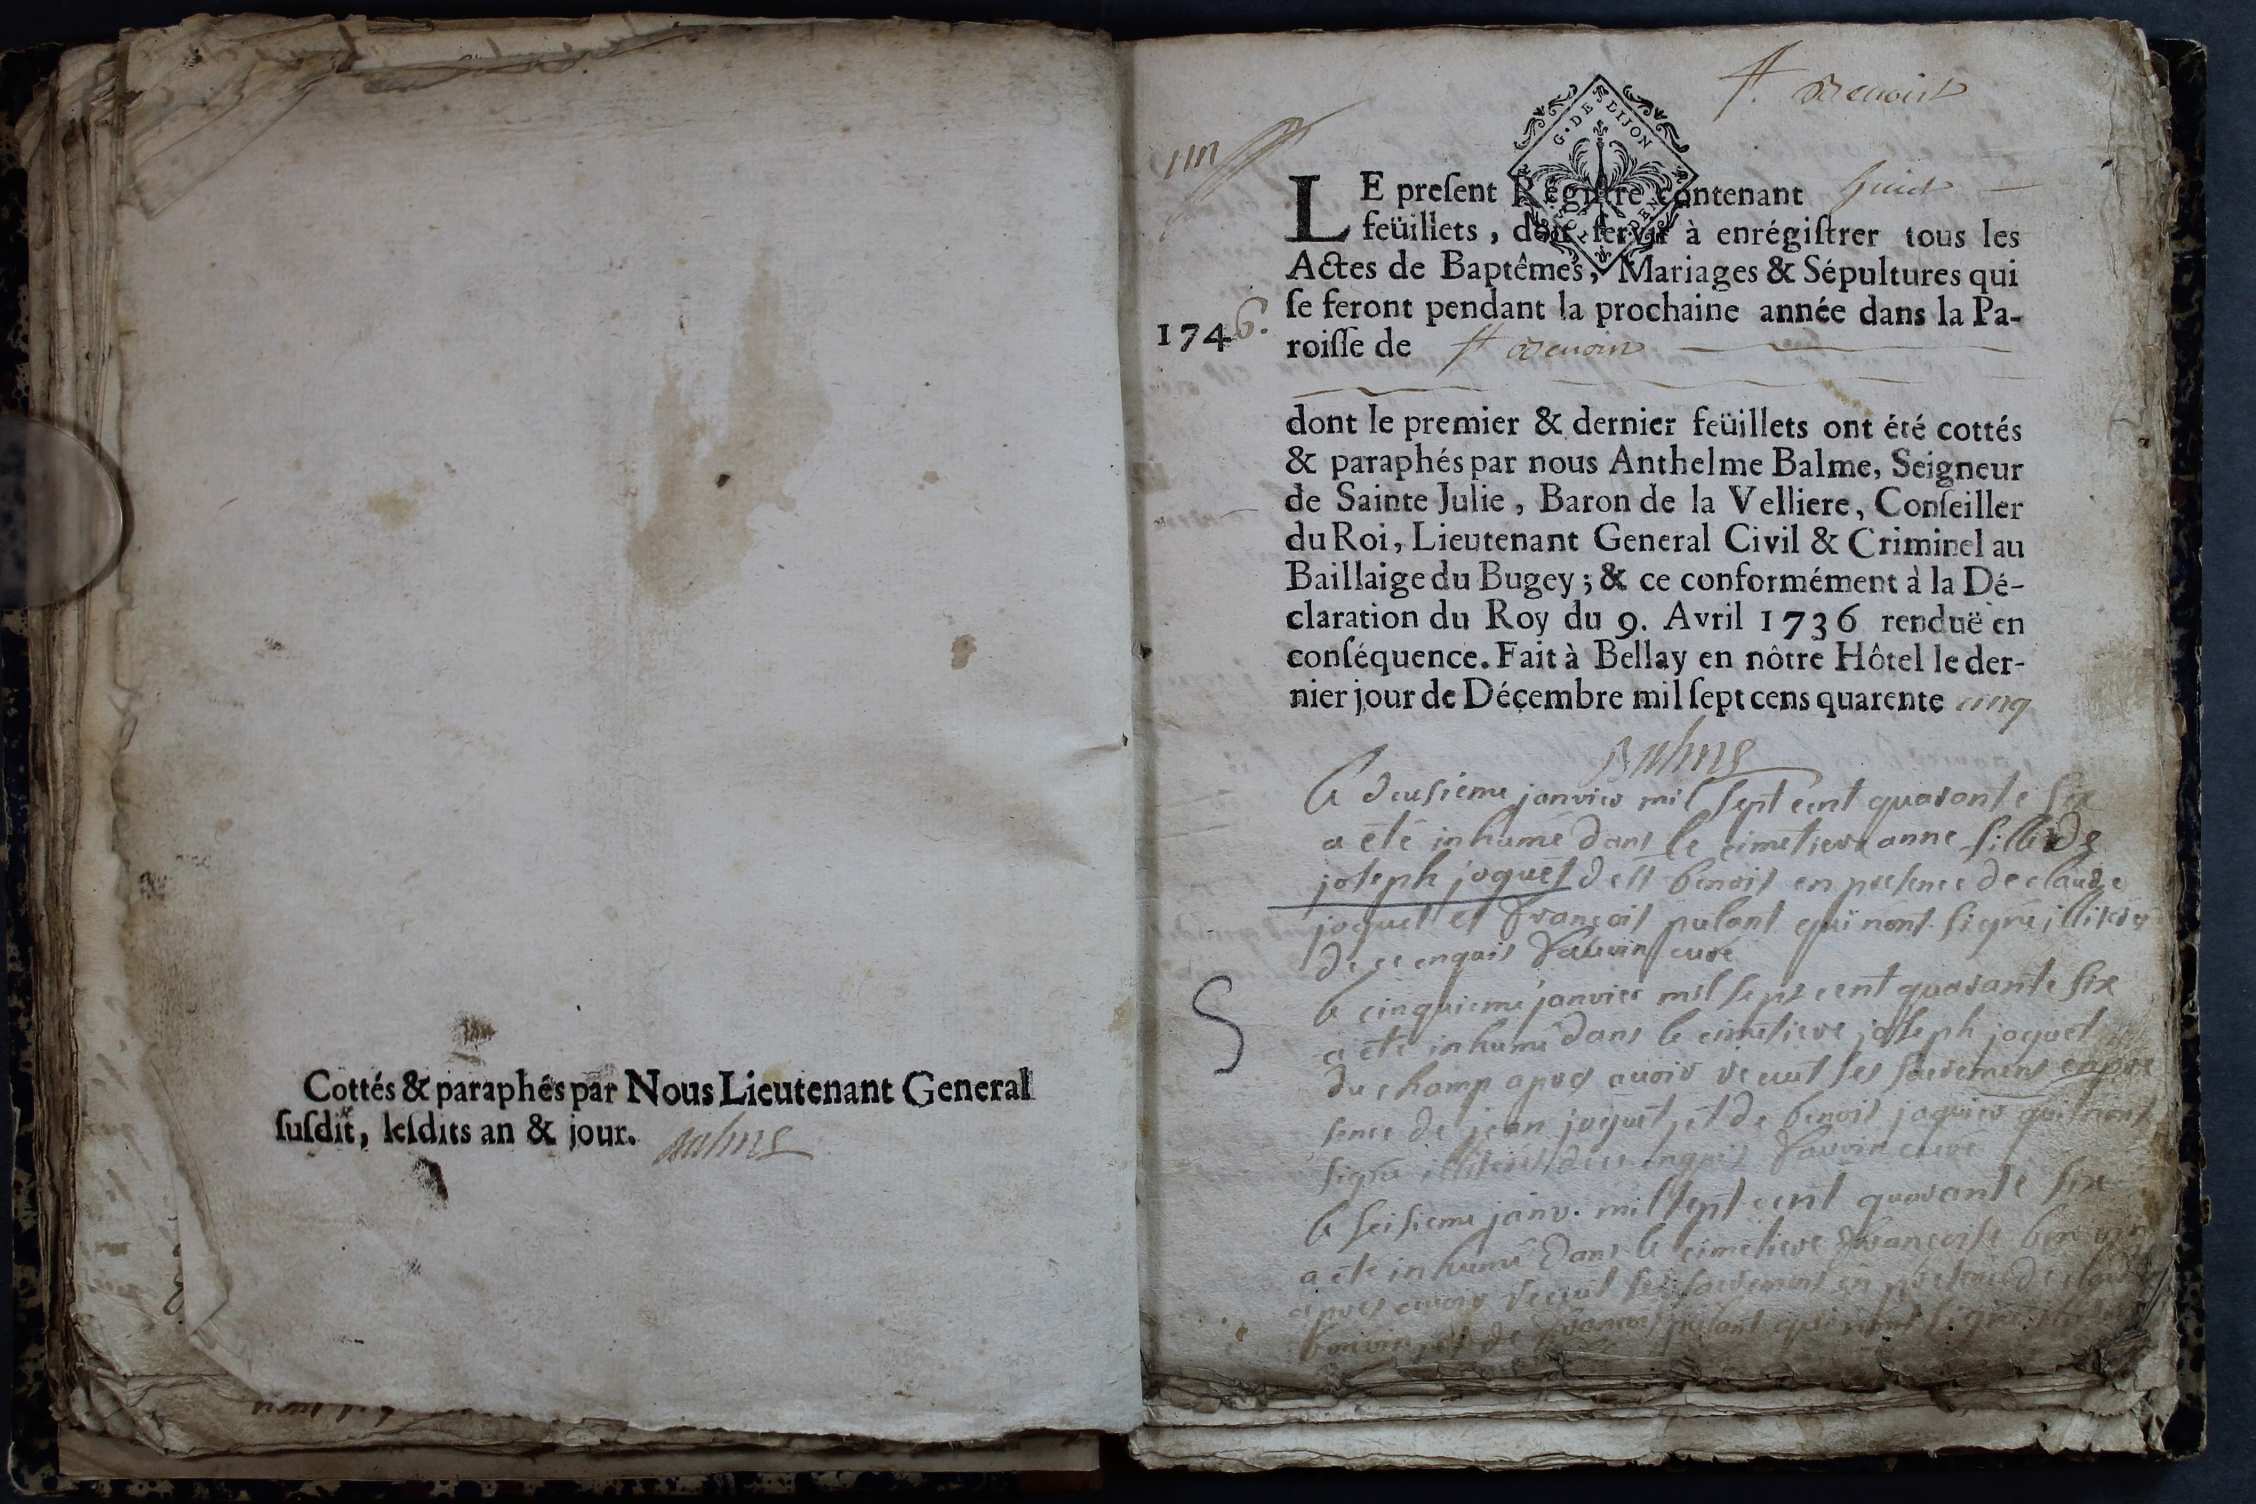 Cottés & paraphés par Nous Lieutenant General
suſdit, leſdits an & jour. Balme
St Benoist
G. DE DIJON
LE preſent Régiſtre contenant huict
feüillets, doit ſervir à enrégiſtrer tous les
Actes de Baptêmes, Mariages & Sépultures qui
ſe feront pendant la prochaine année dans la Pa-
1746.
roiſſe de St Benoist
dont le premier & dernier feüillets ont été cottés
& paraphés par nous Anthelme Balme, Seigneur
de Sainte Julie, Baron de la Velliere, Conſeiller
du Roi, Lieutenant General Civil & Criminel au
Baillaige du Bugey; & ce conformément à la Dé-
claration du Roy du 9. Avril 1736 renduë en
conſéquence. Fait à Bellay en nôtre Hôtel le der-
nier jour de Décembre mil ſept cens quarente cinq
Balme
le deusieme janvier mil sept cent quarante six
a été inhumé dans le cimetiere anne fille de
joseph joquet de st benoit en presence de claude
joquet et françois pulant qui nont signé illiteres
de ce enquis Fauvin curé
le cinquieme janvier mil sept cent quarante six
a été inhumé dans le cimetiere joseph joquet
du champ apres avoir recut ses sacremens en pre
sence de jean joquet, et de benoit joquier qui nont
signé illiteres de ce enquis Fauvin curé
le seisieme janv. mil sept cent quarante six
a été inhumé dans le cimetiere françoise bonvin
apres avoir recut ses sacremens en presence de claude
bonvin, et de francois pulant qui nont signé